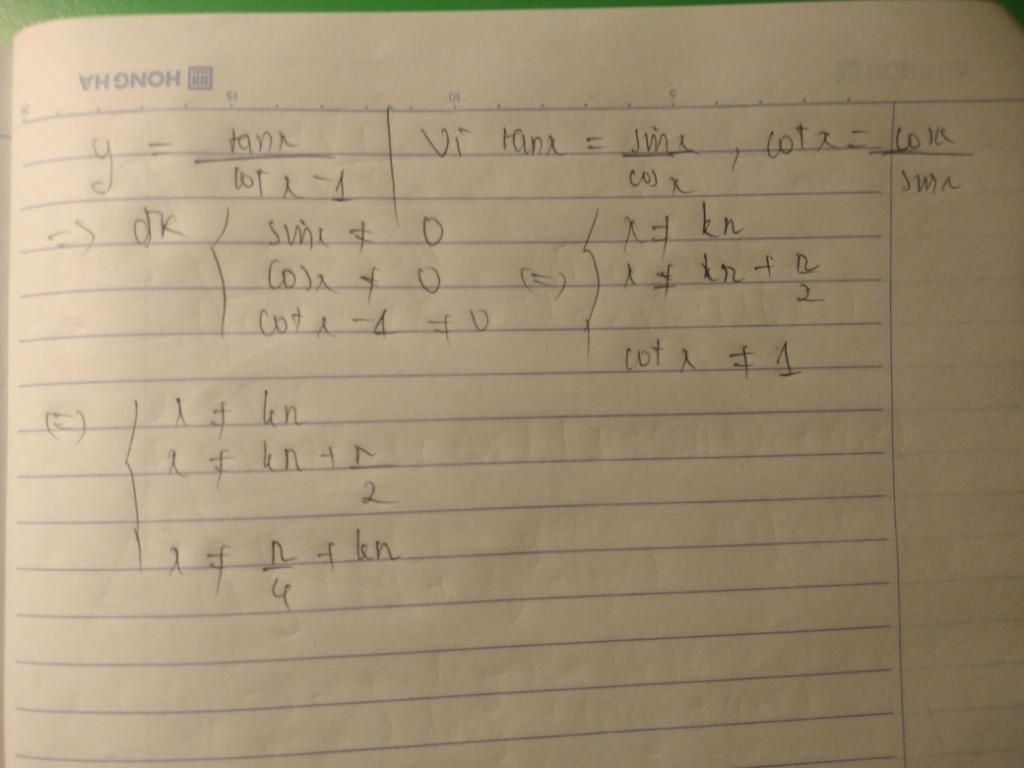 HONG HA
15 10 5
y = tanx / cot x - 1 | Vì tanx = sinx / cos x , cotx = cosx / sinx
=> đk { sinx ≠ 0
cosx ≠ 0
cot x - 1 ≠ 0
(=) { x ≠ kπ
x ≠ kπ + π/2
cot x ≠ 1
(=) { x ≠ kπ
x ≠ kπ + π/2
x ≠ π/4 + kπ